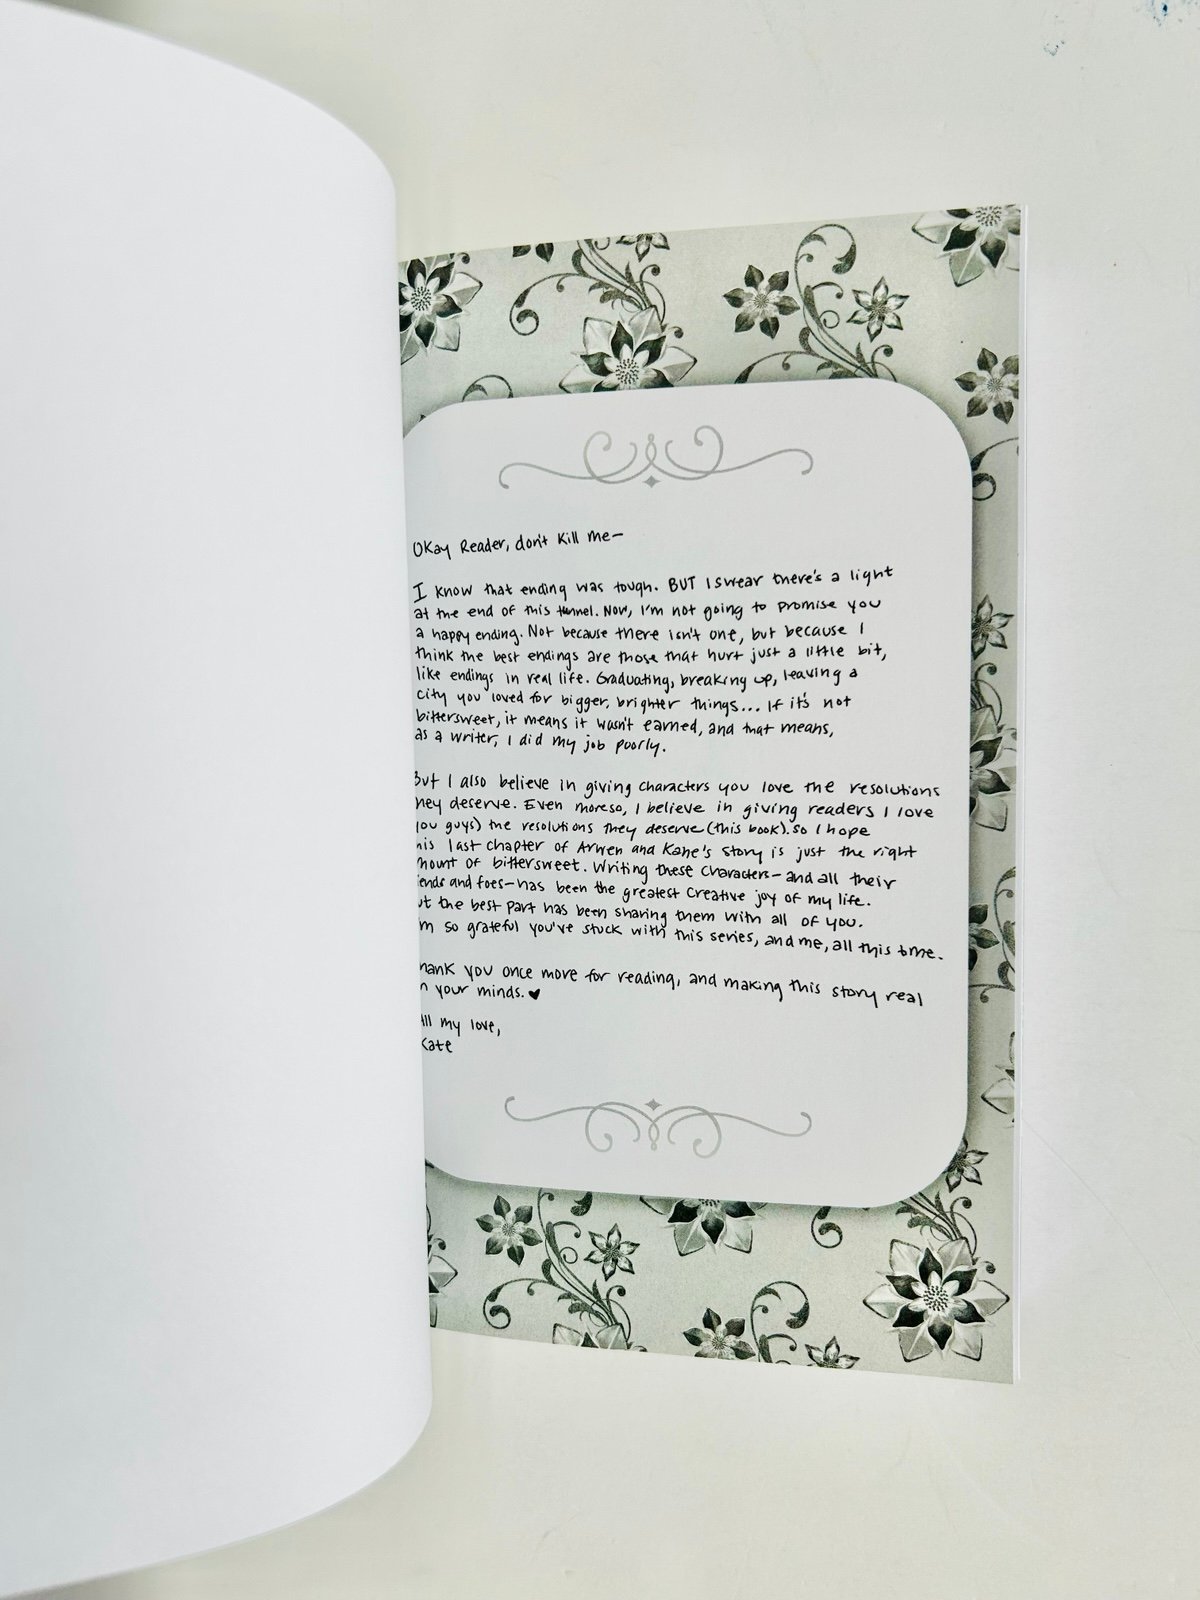 Okay Reader, don't kill me—
I know that ending was tough. BUT I swear there's a light
at the end of this tunnel. Now, I'm not going to promise you
a happy ending. Not because there isn't one, but because I
think the best endings are those that hurt just a little bit,
like endings in real life. Graduating, breaking up, leaving a
city you loved for bigger, brighter things... If it's not
bittersweet, it means it wasn't earned, and that means,
as a writer, I did my job poorly.
But I also believe in giving characters you love the resolutions
hey deserve. Even moreso, I believe in giving readers I love
ou guys) the resolutions they deserve (this book). So I hope
his last chapter of Arwen and Kane's story is just the right
mount of bittersweet. Writing these characters—and all their
iends and foes—has been the greatest creative joy of my life.
ut the best part has been sharing them with all of you.
'm so grateful you've stuck with this series, and me, all this time.
hank you once more for reading, and making this story real
n your minds. ♥
All my love,
Kate